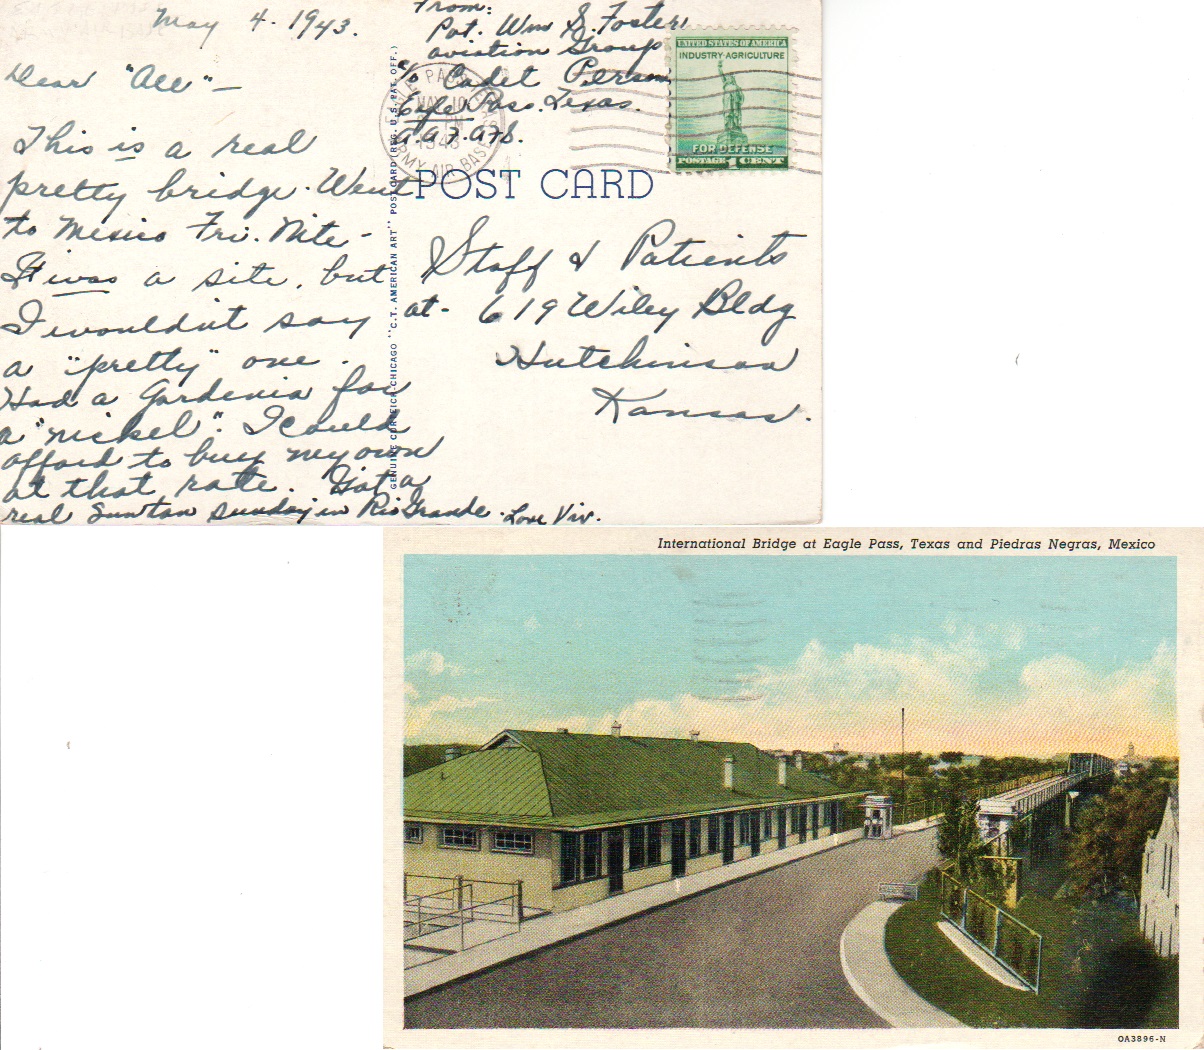 May 4 - 1943.
Dear "All" -
This is a real
pretty bridge. Went
to Mexico Fri. Nite -
It was a site, but
I wouldn't say
a "pretty" one.
Had a Gardenia for
a "nickel". I could
afford to buy my own
at that rate. Got a
real suntan Sunday in Rio Grande. Love Viv.
From:
Pvt. Wm S. Foster
aviation Group
c/o Cadet
Eagle Pass. Texas.
EAGLE PASS TEXAS
MAY 10
PM
1943
ARMY AIR BASE
UNITED STATES OF AMERICA
INDUSTRY·AGRICULTURE
FOR DEFENSE
POSTAGE 1 CENT
POST CARD
Staff & Patients
at - 619 Wiley Bldg
Hutchinson
Kansas.
GENUINE CURTEICH-CHICAGO "C.T. AMERICAN ART" POST CARD (REG. U.S. PAT. OFF.)
International Bridge at Eagle Pass, Texas and Piedras Negras, Mexico
OA3896-N